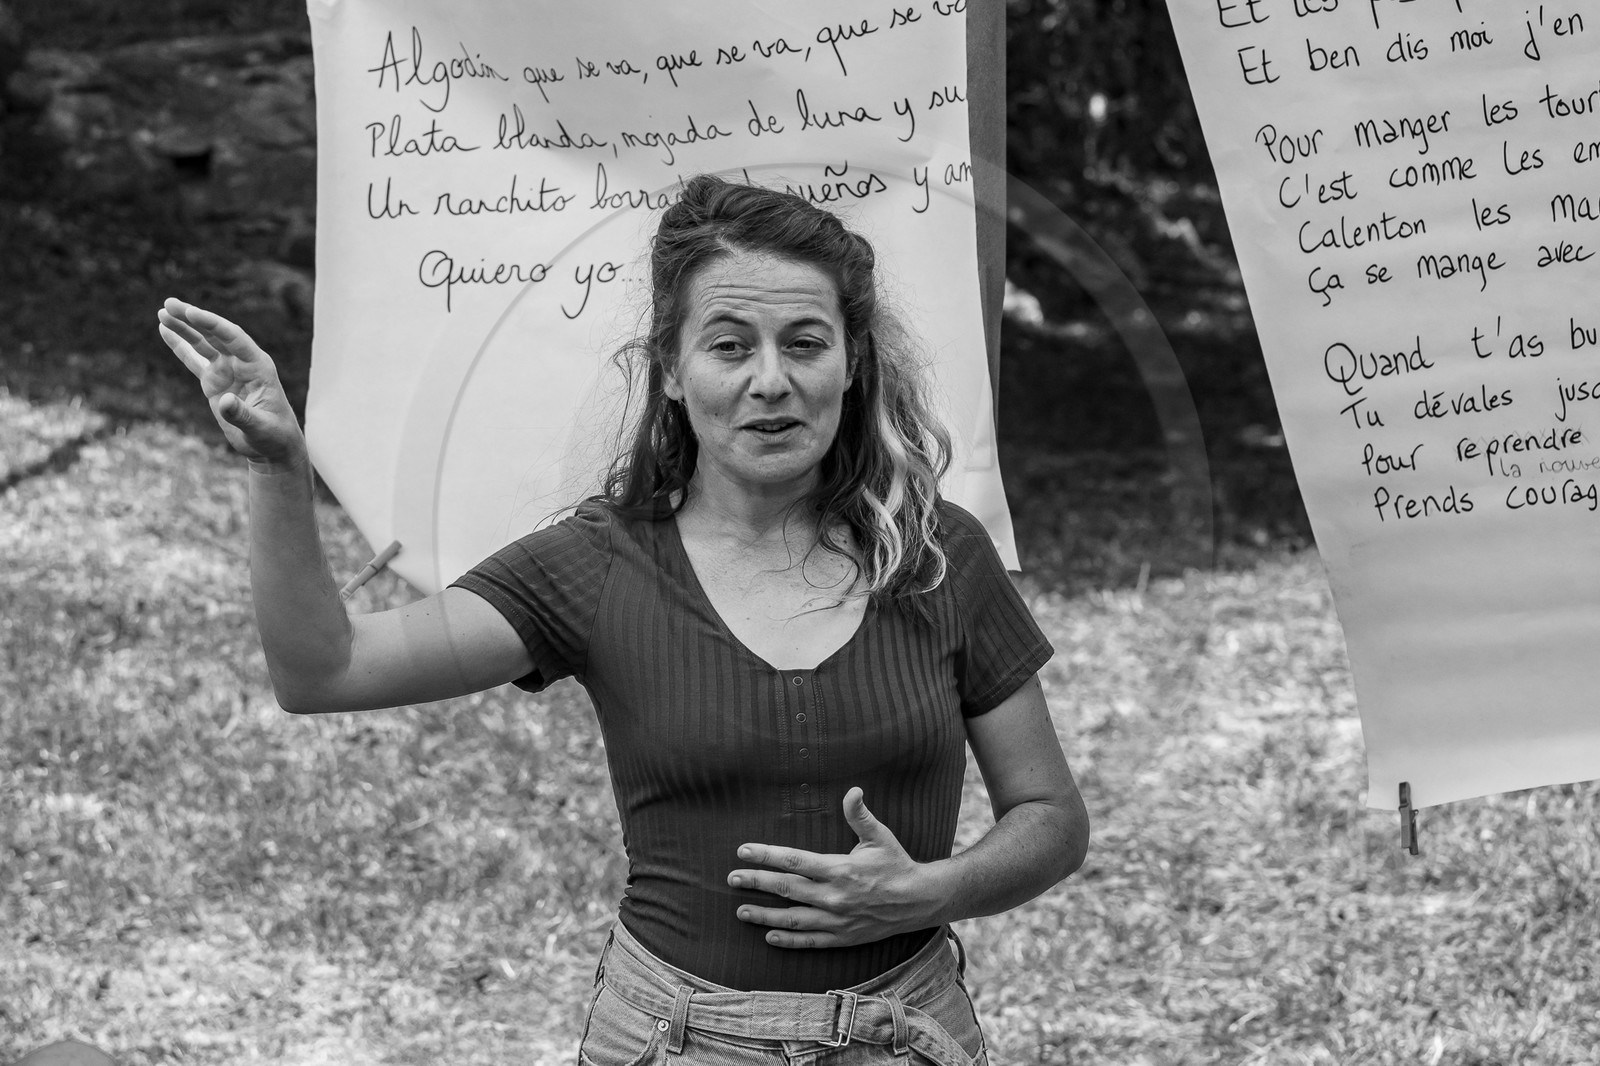 Algodón que se va, que se va, que se va
Plata blanda, mojada de luna y su
Un ranchito borra sueños y am
Quiero yo...
Et les
Et ben dis moi j'en
Pour manger les tour
C'est comme les em
Calenton les ma
Ça se mange avec
Quand t'as bu
Tu dévales jusq
Pour reprendre
la nouve
Prends courag